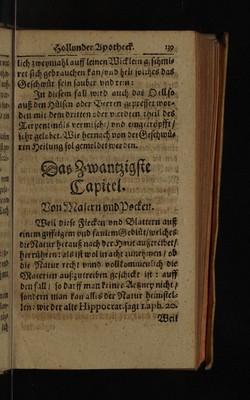 Hollunder Apotheck. 139
lich zweymahl auff leinen Wicklein gschmi-
ret sich gebrauchen kan/und helt solches das
Geschwür fein sauber und rein:
In diesem fall wird auch das Oell so
auß den Hülsen oder Beeren gepresset wor-
den mit dem dritten oder vierden theil des
Terpentinöls vermischt/und eingetröpfft/
sehr gelobet. Wie hernach von der Geschwü-
ren Heilung sol gemeldet werden.
Das Zwantzigste
Capitel.
Von Masern und Pocken.
Weil diese Flecken und Blattern auß
einem gifftigem und faulem Geblüt/welches
die Natur herauß nach der Haut außtreibet/
herrühren: als ist wol in acht zunehmen/ ob
die Natur recht unnd vollkommenlich die
Materien außzutreiben geschickt ist: auff
den fall/ so darff man keiner Artzney nicht/
sondern man kan alles der Natur heimstel-
len: wie der alte Hippocrat. sagt 1. aph. 20.
Weil